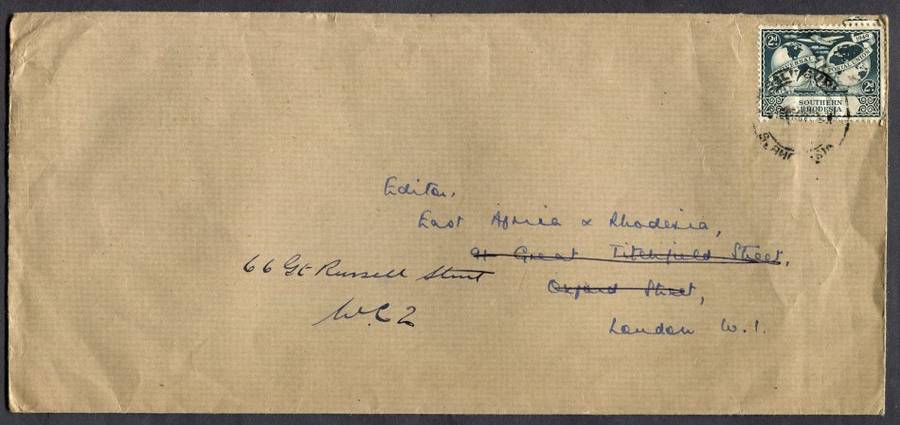 2d
1949
UNIVERSAL POSTAL UNION
2d
SOUTHERN
RHODESIA
Editor,
East Africa & Rhodesia,
91 Great Titchfield Street,
66 Gt Russell Street
Oxford Street,
W.C 2
London W. 1.